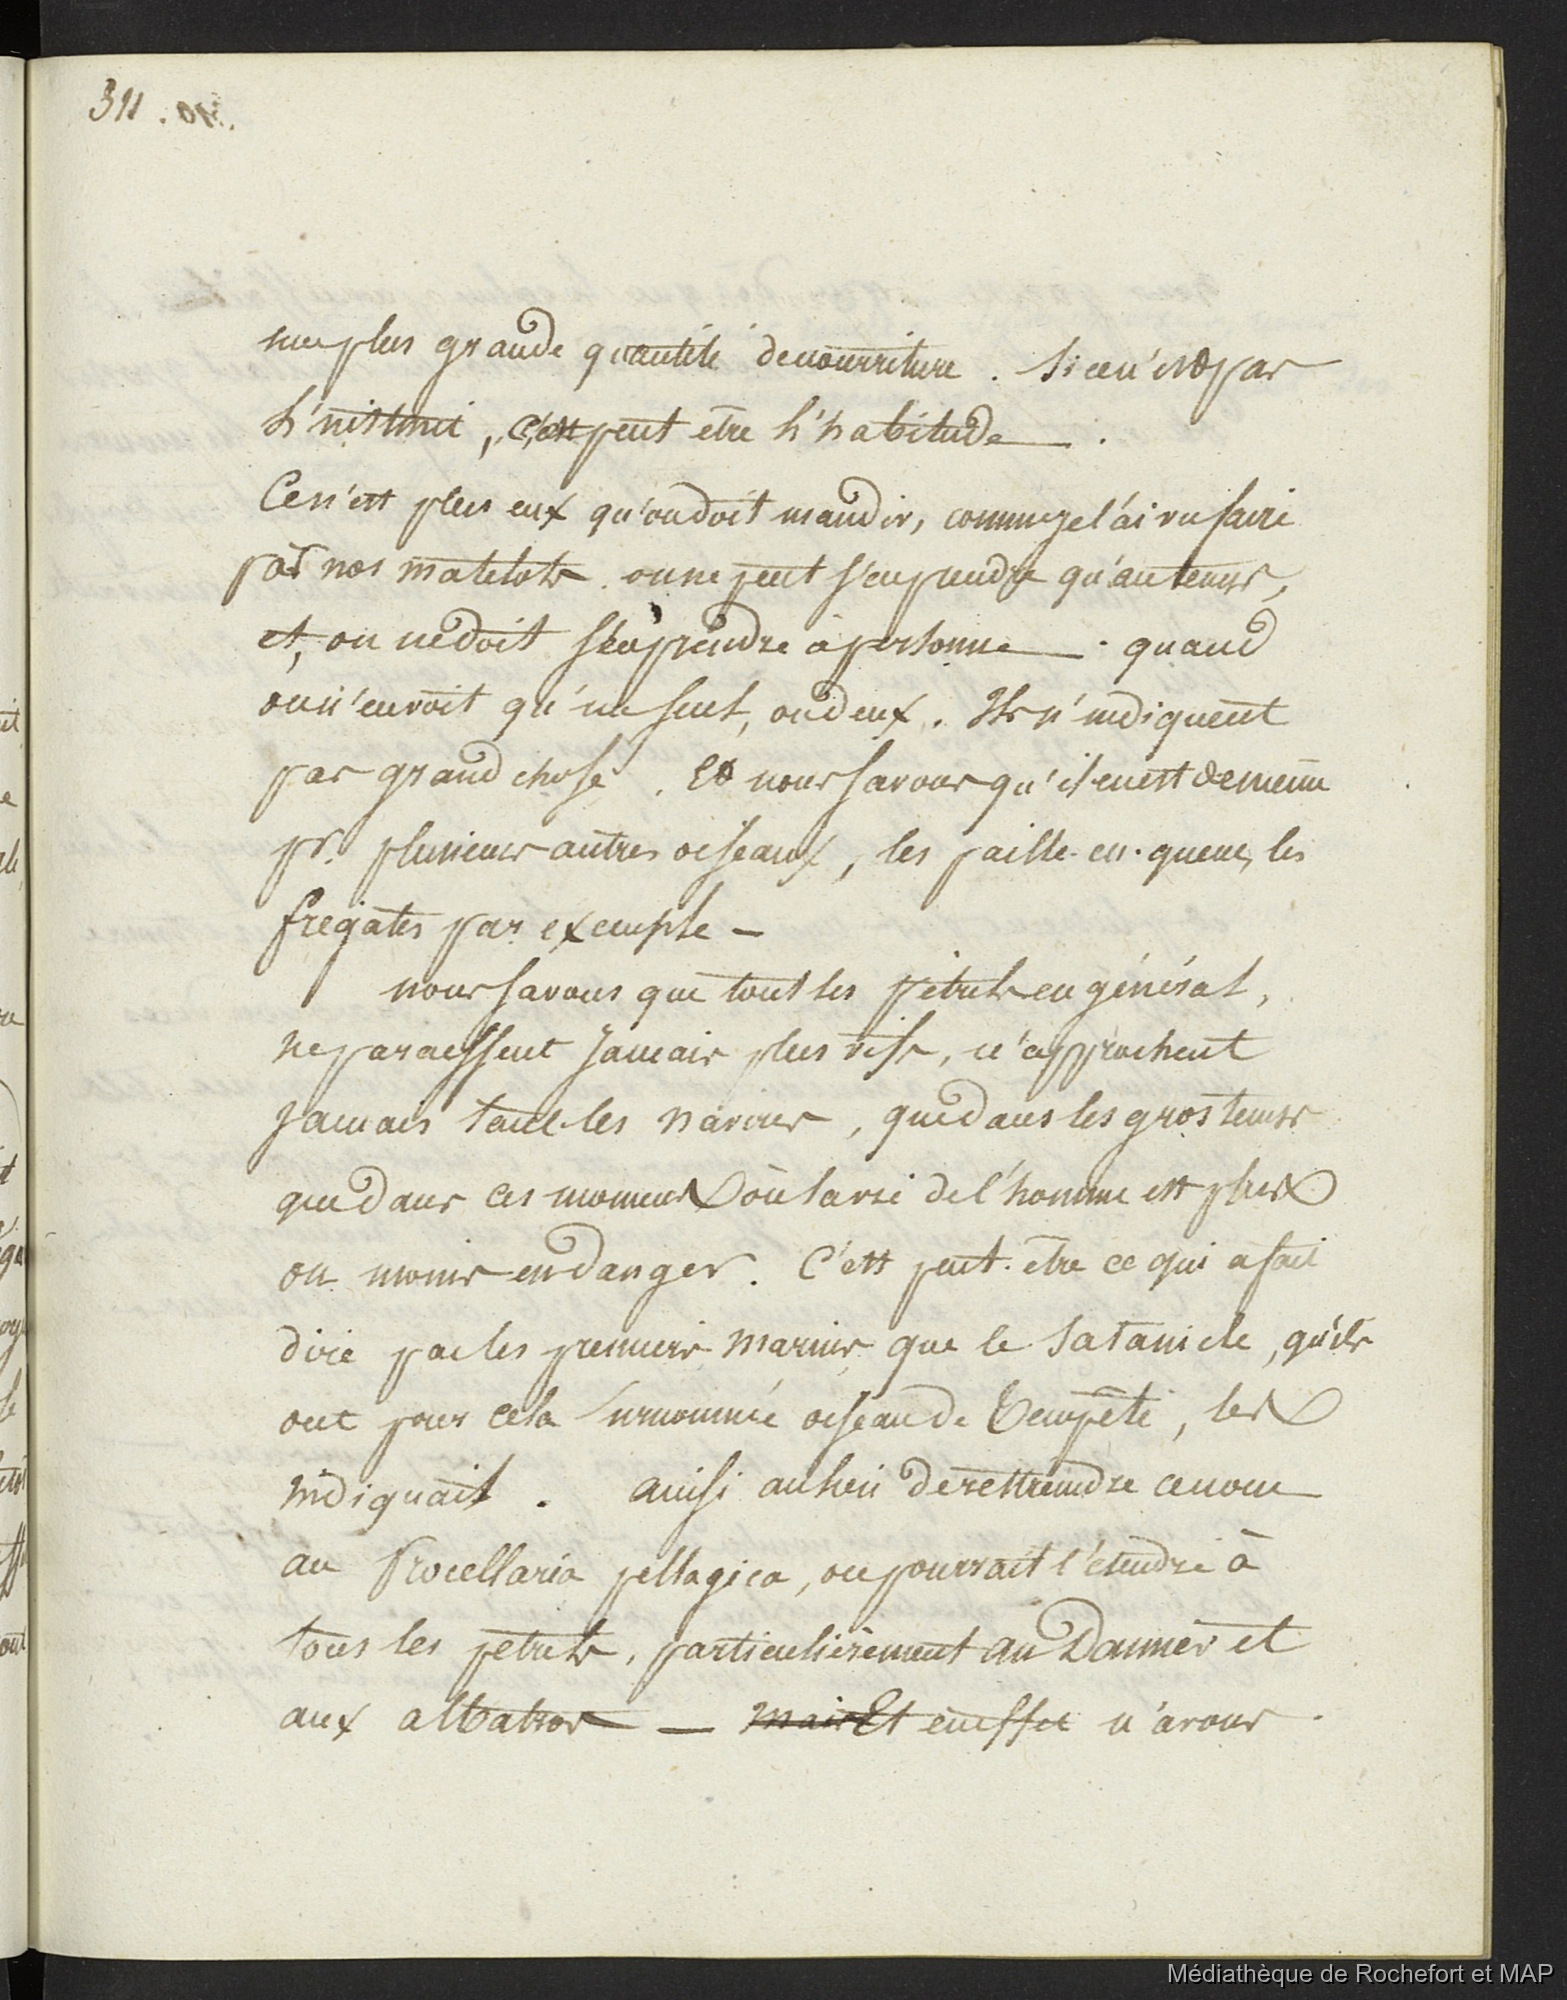 311.
une plus grande quantité de nourriture. Si ce n'est pas
l'instinct, c'est peut etre l'habitude.
Ce n'est plus eux qu'on doit maudir, comme je l'ai vu faire
par nos matelots. on ne peut s'en prendre qu'au tems,
et, on ne doit s'en prendre à personne. quand
on n'en voit qu'un seul, ou deux. Ils n'indiquent
pas grand chose. Et nous savons qu'il en est de meme
pr. plusieurs autres oiseaux, les paille-en-queue, les
fregates par exemple —
nous savons que tout les pétrels en général,
ne paraissent jamais plus vifs, n'approchent
jamais tant les navires, que dans les gros tems
que dans ces momens où la vie de l'homme est plus
ou moins en danger. C'est peut-etre ce qui a fait
dire par les premiers marins que le satanicle, qu'ils
ont pour cela surnommée oiseau de tempête, les
indiquait. ainsi au lieu de restreindre ce nom
au Procellaria pellagica, on pourrait l'étendre à
tous les petrels, particulièrement au Damier et
aux albatros — mais Et en effet n'avons
Médiathèque de Rochefort et MAP